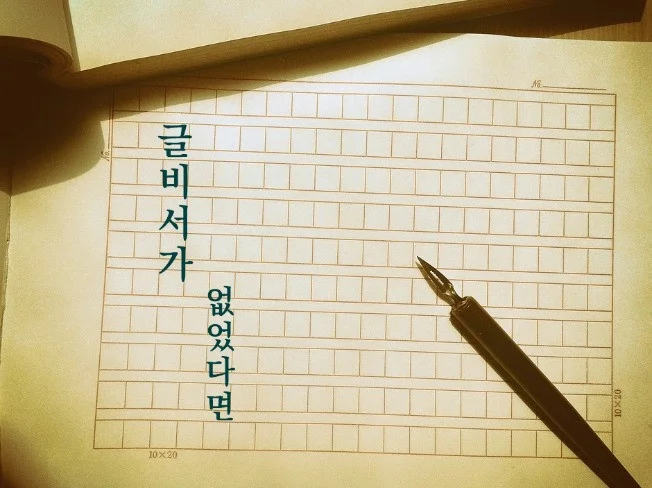 №
글비서가
없었다면
№
10×20
10×20